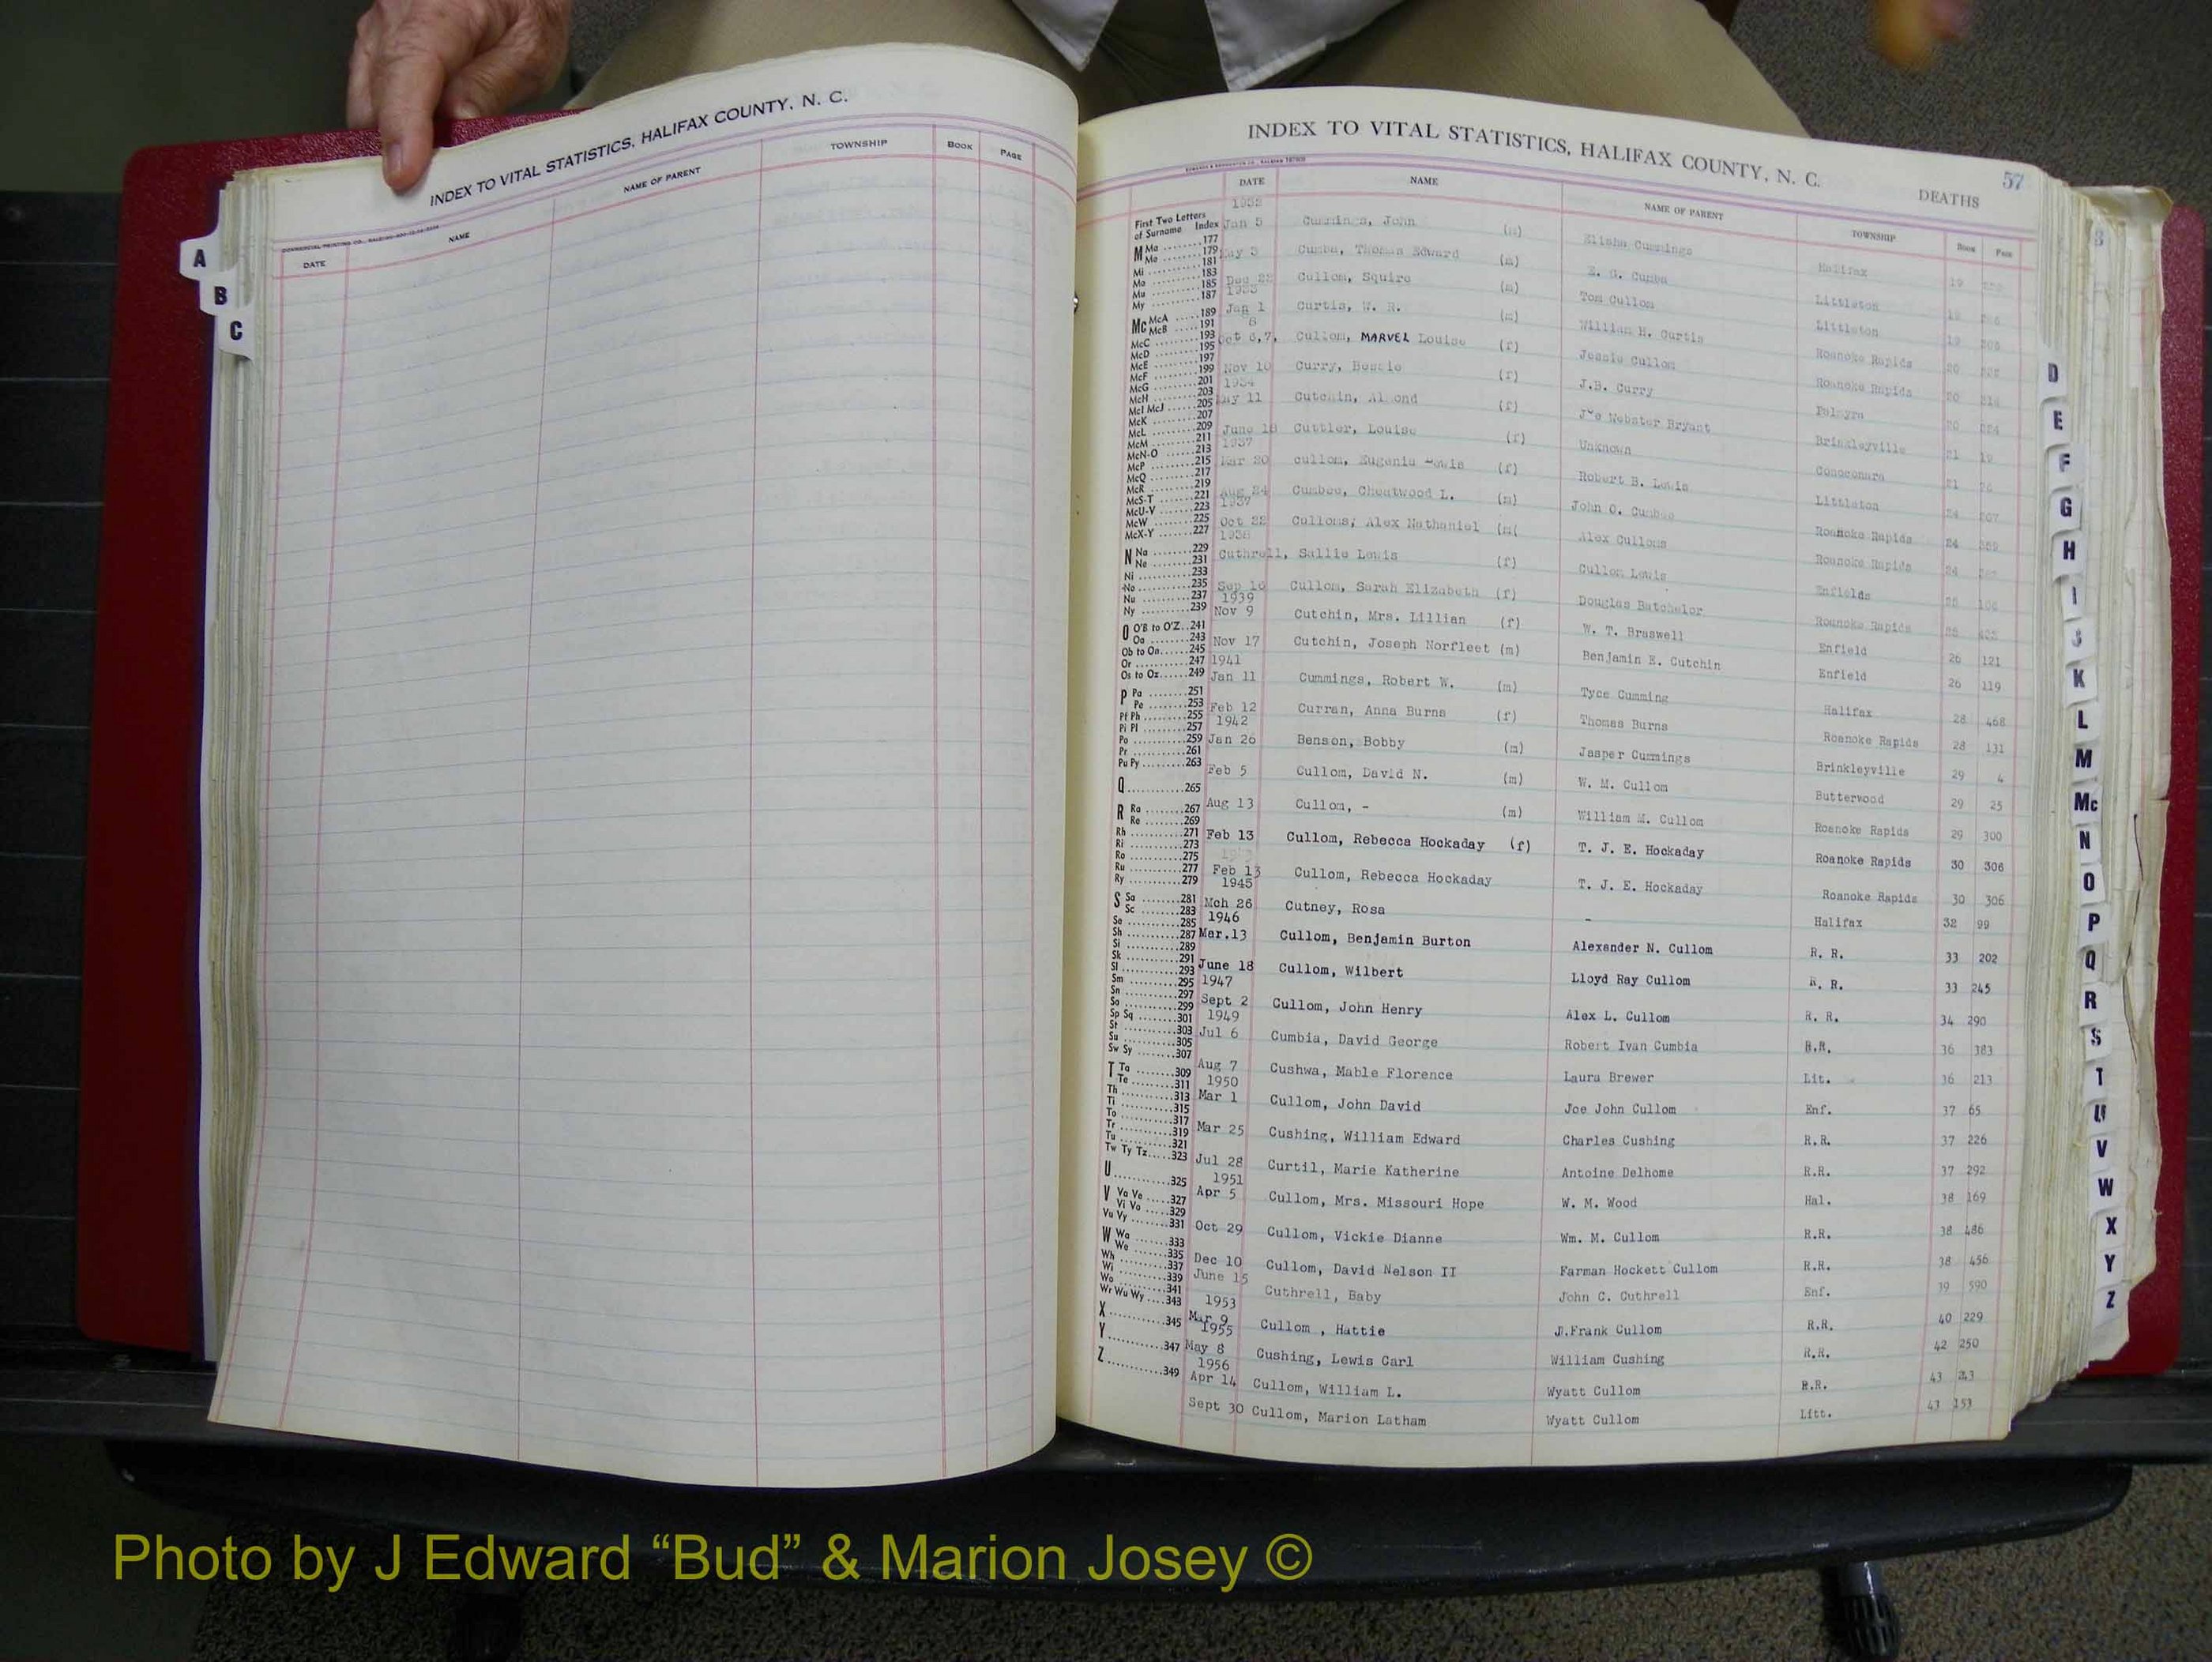 INDEX TO VITAL STATISTICS, HALIFAX COUNTY, N. C.
DATE NAME NAME OF PARENT TOWNSHIP BOOK PAGE
A
B
C
INDEX TO VITAL STATISTICS, HALIFAX COUNTY, N. C.
57
DEATHS
DATE NAME NAME OF PARENT TOWNSHIP BOOK PAGE
First Two Letters
of Surname Index
M Ma 177
Me 179
Mi 181
Mo 183
Mu 185
My 187
Mc McA 189
McB 191
McC 193
McD 195
McE 197
McF 199
McG 201
McH 203
McI McJ 205
McK 207
McL 209
McM 211
McN-O 213
McP 215
McQ 217
McR 219
McS-T 221
McU-V 223
McW 225
McX-Y 227
N Na 229
Ne 231
Ni 233
No 235
Nu 237
Ny 239
O O'B to O'Z 241
Oa 243
Ob to On 245
Or 247
Os to Oz 249
P Pa 251
Pe 253
Pf Ph 255
Pi Pl 257
Po 259
Pr 261
Pu Py 263
Q 265
R Ra 267
Re 269
Rh 271
Ri 273
Ro 275
Ru 277
Ry 279
S Sa 281
Sc 283
Se 285
Sh 287
Si 289
Sk 291
Sl 293
Sm 295
Sn 297
So 299
Sp Sq 301
St 303
Su 305
Sw Sy 307
T Ta 309
Te 311
Th 313
Ti 315
To 317
Tr 319
Tu 321
Tw Ty Tz 323
U 325
V Va Ve 327
Vi Vo 329
Vu Vy 331
W Wa 333
We 335
Wh 337
Wi 339
Wo 341
Wr Wu Wy 343
X 345
Y 347
Z 349
Jan 5 Cummings, John (m) Elisha Cummings Halifax 19
May 3 Cumba, Thomas Edward (m) E. G. Cumba Littleton
Dec 22 Cullom, Squire (m) Tom Cullom Littleton 19
Jan 1 Curtis, W. R. (m) William H. Curtis Roanoke Rapids 20
Oct 6,7, Cullom, MARVEL Louise (f) Jessie Cullom Roanoke Rapids 20
Nov 10 Curry, Bessie (f) J.B. Curry Palmyra 20
1934
May 11 Cutchin, Almond (f) Joe Webster Bryant Brinkleyville 21
June 18 Cuttler, Louise (f) Unknown Conoconara 21
1937
Mar 20 cullom, Eugenia Lewis (f) Robert B. Lewis Littleton 24
Aug 24 Cumbee, Cheatwood L. (m) John O. Cumbee Roanoke Rapids 24
1937
Oct 22 Culloms, Alex Nathaniel (m( Alex Culloms Roanoke Rapids 24
1938
Cuthrell, Sallie Lewis (f) Cullom Lewis Enfields
Sep 16 Cullom, Sarah Elizabeth (f) Douglas Batchelor Roanoke Rapids
1939
Nov 9 Cutchin, Mrs. Lillian (f) W. T. Braswell Enfield 26 121
Nov 17 Cutchin, Joseph Norfleet (m) Benjamin E. Cutchin Enfield 26 119
1941
Jan 11 Cummings, Robert W. (m) Tyce Cumming Halifax 28 468
Feb 12 Curran, Anna Burns (f) Thomas Burns Roanoke Rapids 28 131
1942
Jan 26 Benson, Bobby (m) Jasper Cummings Brinkleyville 29 4
Feb 5 Cullom, David N. (m) W. M. Cullom Butterwood 29 25
Aug 13 Cullom, - (m) William M. Cullom Roanoke Rapids 29 300
Feb 13 Cullom, Rebecca Hockaday (f) T. J. E. Hockaday Roanoke Rapids 30 306
Feb 13 Cullom, Rebecca Hockaday T. J. E. Hockaday Roanoke Rapids 30 306
1945
Mch 26 Cutney, Rosa - Halifax 32 99
1946
Mar.13 Cullom, Benjamin Burton Alexander N. Cullom R. R. 33 202
June 18 Cullom, Wilbert Lloyd Ray Cullom R. R. 33 245
1947
Sept 2 Cullom, John Henry Alex L. Cullom R. R. 34 290
1949
Jul 6 Cumbia, David George Robert Ivan Cumbia R.R. 36 383
Aug 7 Cushwa, Mable Florence Laura Brewer Lit. 36 213
1950
Mar 1 Cullom, John David Joe John Cullom Enf. 37 65
Mar 25 Cushing, William Edward Charles Cushing R.R. 37 226
Jul 28 Curtil, Marie Katherine Antoine Delhome R.R. 37 292
1951
Apr 5 Cullom, Mrs. Missouri Hope W. M. Wood Hal. 38 169
Oct 29 Cullom, Vickie Dianne Wm. M. Cullom R.R. 38 486
Dec 10 Cullom, David Nelson II Farman Hockett Cullom R.R. 38 456
June 15 Cuthrell, Baby John C. Cuthrell Enf. 39 590
1953
Mar 9 Cullom , Hattie J.Frank Cullom R.R. 40 229
1955
May 8 Cushing, Lewis Carl William Cushing R.R. 42 250
1956
Apr 14 Cullom, William L. Wyatt Cullom R.R. 43 243
Sept 30 Cullom, Marion Latham Wyatt Cullom Litt. 43 153
D
E
F
G
H
I
J
K
L
M
Mc
N
O
P
Q
R
S
T
U
V
W
X
Y
Z
Photo by J Edward “Bud” & Marion Josey ©